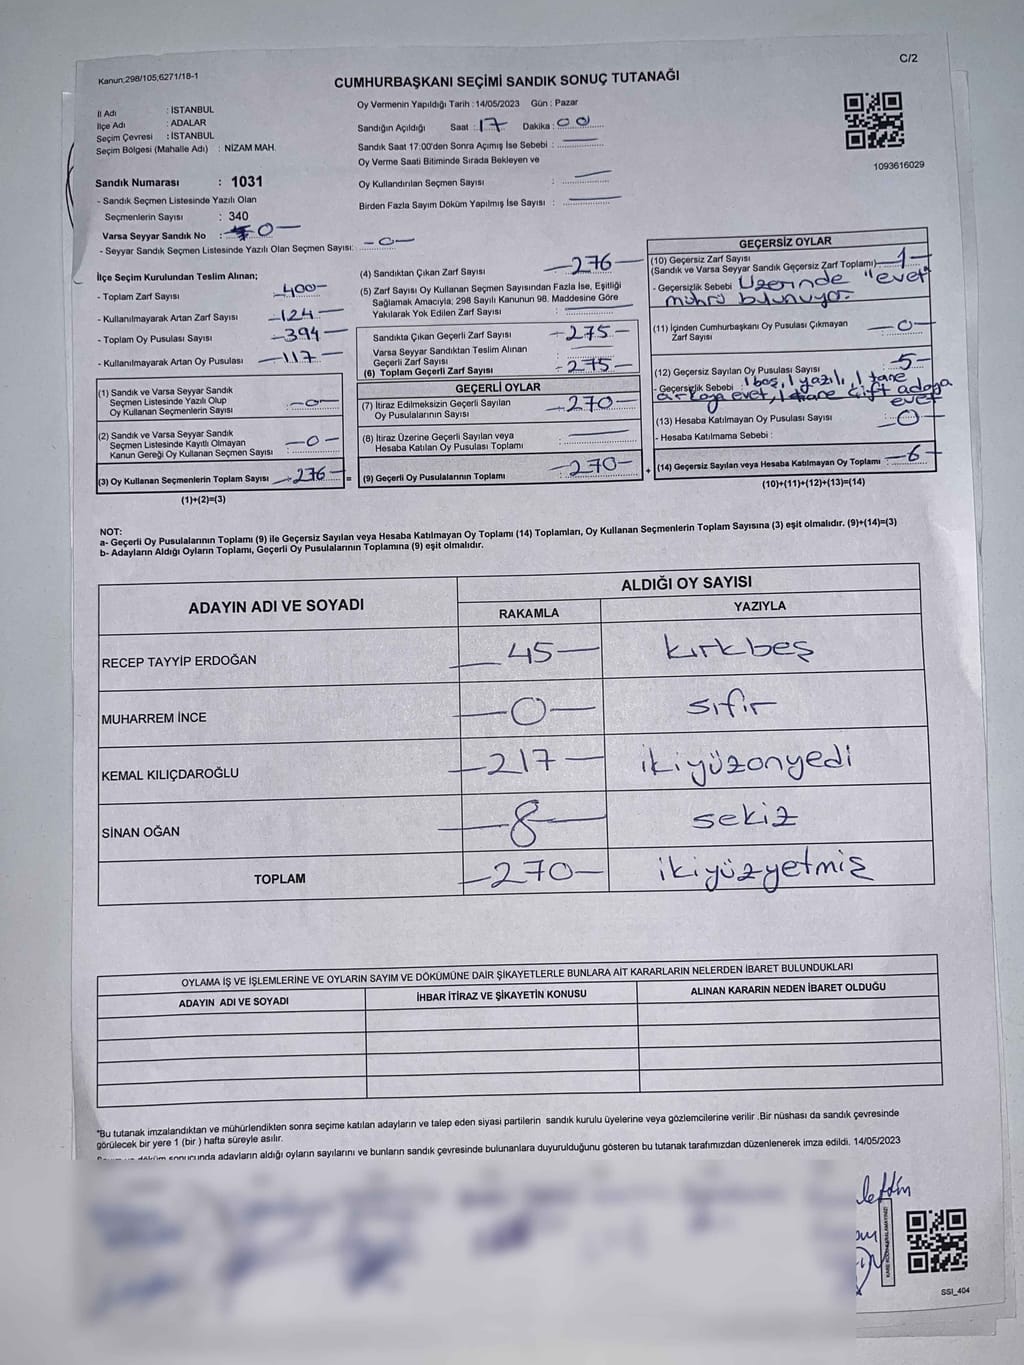 C/2
Kanun;298/105;6271/18-1
CUMHURBAŞKANI SEÇİMİ SANDIK SONUÇ TUTANAĞI
İl Adı : İSTANBUL
İlçe Adı : ADALAR
Seçim Çevresi : İSTANBUL
Seçim Bölgesi (Mahalle Adı) : NİZAM MAH.
Sandık Numarası : 1031
- Sandık Seçmen Listesinde Yazılı Olan
Seçmenlerin Sayısı : 340
Varsa Seyyar Sandık No : 0
- Seyyar Sandık Seçmen Listesinde Yazılı Olan Seçmen Sayısı: -0-
Oy Vermenin Yapıldığı Tarih : 14/05/2023 Gün : Pazar
Sandığın Açıldığı Saat : 17 Dakika : 00
Sandık Saat 17:00'den Sonra Açımış İse Sebebi :
Oy Verme Saati Bitiminde Sırada Bekleyen ve
Oy Kullandırılan Seçmen Sayısı :
Birden Fazla Sayım Döküm Yapılmış İse Sayısı :
1093616029
İlçe Seçim Kurulundan Teslim Alınan;
- Toplam Zarf Sayısı 400-
- Kullanılmayarak Artan Zarf Sayısı -124-
- Toplam Oy Pusulası Sayısı -394-
- Kullanılmayarak Artan Oy Pusulası -117-
(1) Sandık ve Varsa Seyyar Sandık
Seçmen Listesinde Yazılı Olup
Oy Kullanan Seçmenlerin Sayısı -0-
(2) Sandık ve Varsa Seyyar Sandık
Seçmen Listesinde Kayıtlı Olmayan
Kanun Gereği Oy Kullanan Seçmen Sayısı -0-
(3) Oy Kullanan Seçmenlerin Toplam Sayısı -276-
(1)+(2)=(3)
=
(4) Sandıktan Çıkan Zarf Sayısı -276-
(5) Zarf Sayısı Oy Kullanan Seçmen Sayısından Fazla İse, Eşitliği
Sağlamak Amacıyla; 298 Sayılı Kanunun 98. Maddesine Göre
Yakılarak Yok Edilen Zarf Sayısı :
Sandıkta Çıkan Geçerli Zarf Sayısı -275-
Varsa Seyyar Sandıktan Teslim Alınan
Geçerli Zarf Sayısı
(6) Toplam Geçerli Zarf Sayısı -275-
GEÇERLİ OYLAR
(7) İtiraz Edilmeksizin Geçerli Sayılan
Oy Pusulalarının Sayısı -270-
(8) İtiraz Üzerine Geçerli Sayılan veya
Hesaba Katılan Oy Pusulası Toplamı
(9) Geçerli Oy Pusulalarının Toplamı -270-
+
GEÇERSİZ OYLAR
(10) Geçersiz Zarf Sayısı
(Sandık ve Varsa Seyyar Sandık Geçersiz Zarf Toplamı) -1-
- Geçersizlik Sebebi Üzerinde "evet"
mührü bulunuyor.
(11) İçinden Cumhurbaşkanı Oy Pusulası Çıkmayan
Zarf Sayısı -0-
(12) Geçersiz Sayılan Oy Pusulası Sayısı -5-
- Geçersizlik Sebebi : 1 boş, 1 yazılı, 1 tane
arkaya evet, 1 tane çift adaya
evet
(13) Hesaba Katılmayan Oy Pusulası Sayısı -0-
- Hesaba Katılmama Sebebi :
(14) Geçersiz Sayılan veya Hesaba Katılmayan Oy Toplamı -6-
(10)+(11)+(12)+(13)=(14)
NOT:
a- Geçerli Oy Pusulalarının Toplamı (9) ile Geçersiz Sayılan veya Hesaba Katılmayan Oy Toplamı (14) Toplamları, Oy Kullanan Seçmenlerin Toplam Sayısına (3) eşit olmalıdır. (9)+(14)=(3)
b- Adayların Aldığı Oyların Toplamı, Geçerli Oy Pusulalarının Toplamına (9) eşit olmalıdır.
ADAYIN ADI VE SOYADI
ALDIĞI OY SAYISI
RAKAMLA YAZIYLA
RECEP TAYYİP ERDOĞAN 45- kırkbeş
MUHARREM İNCE -0- sıfır
KEMAL KILIÇDAROĞLU -217- ikiyüzonyedi
SİNAN OĞAN -8- sekiz
TOPLAM -270- ikiyüzyetmiş
OYLAMA İŞ VE İŞLEMLERİNE VE OYLARIN SAYIM VE DÖKÜMÜNE DAİR ŞİKAYETLERLE BUNLARA AİT KARARLARIN NELERDEN İBARET BULUNDUKLARI
ADAYIN ADI VE SOYADI İHBAR İTİRAZ VE ŞİKAYETİN KONUSU ALINAN KARARIN NEDEN İBARET OLDUĞU
*Bu tutanak imzalandıktan ve mühürlendikten sonra seçime katılan adayların ve talep eden siyasi partilerin sandık kurulu üyelerine veya gözlemcilerine verilir .Bir nüshası da sandık çevresinde
görülecek bir yere 1 (bir ) hafta süreyle asılır.
sonucunda adayların aldığı oyların sayılarını ve bunların sandık çevresinde bulunanlara duyurulduğunu gösteren bu tutanak tarafımızdan düzenlenerek imza edildi. 14/05/2023
SSI_404